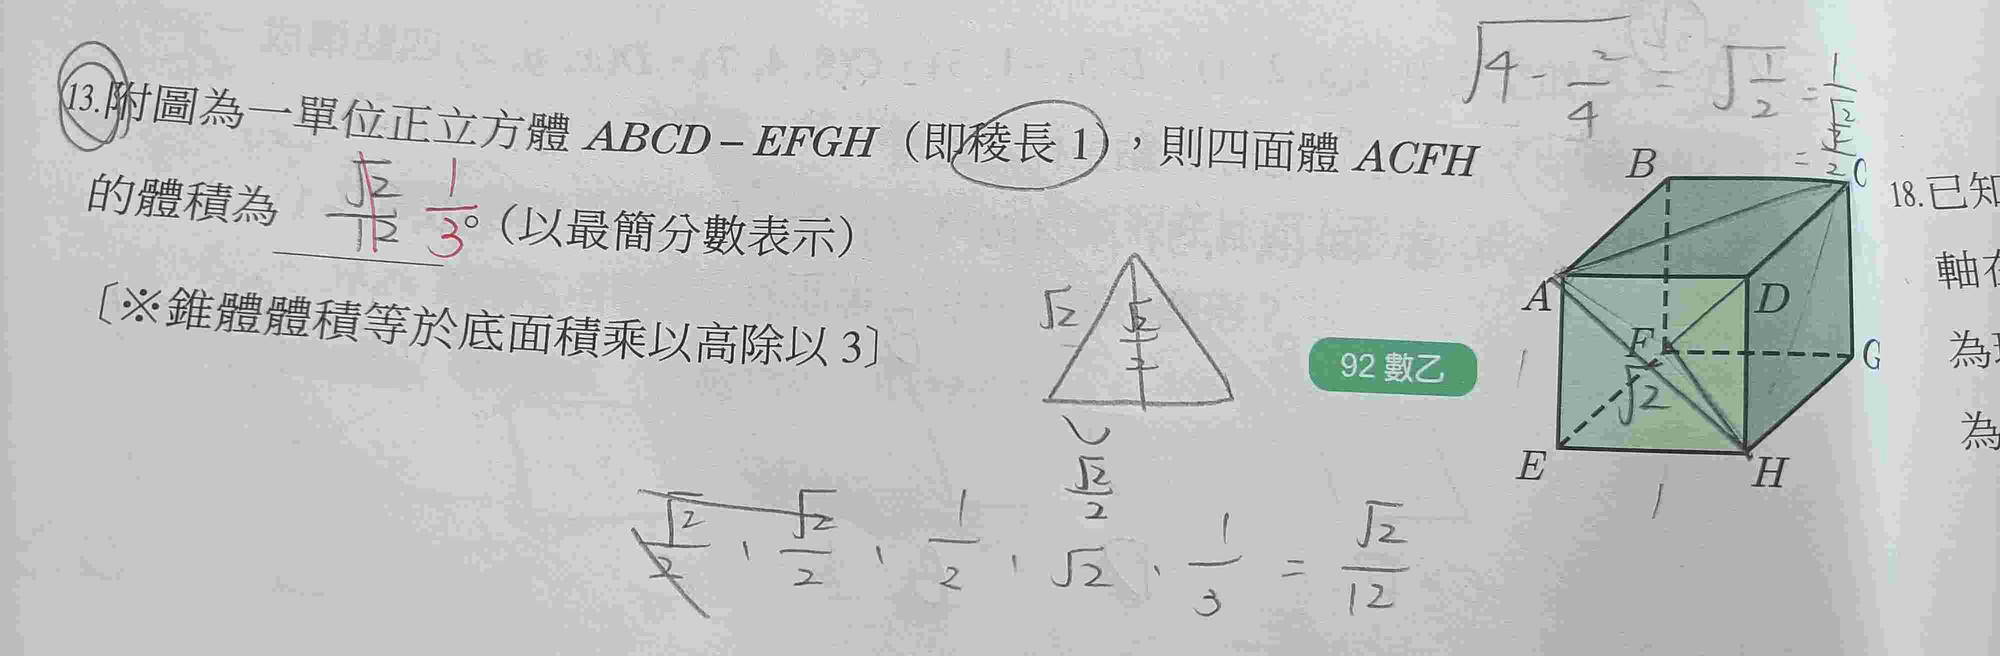 13.附圖為一單位正立方體 ABCD – EFGH（即稜長 1），則四面體 ACFH
的體積為 √2/12 1/3。（以最簡分數表示）
〔※錐體體積等於底面積乘以高除以 3〕
92 數乙
√2 √2/2
√2/2
√2/2 · √2/2 · 1/2 · √2 · 1/3 = √2/12
= √(1/2) = 1/√2
= √2/2
B C
A D
F G
√2
E H
1
1
18.已知
軸在
為
為